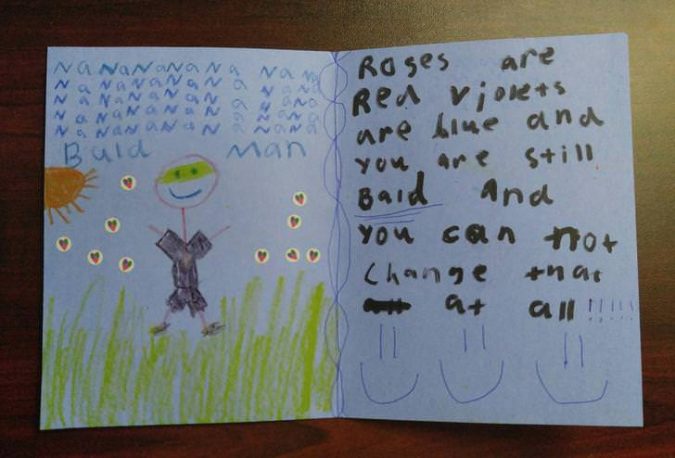 NaNaNaNaNa NaNa
NaNaNaNaNa NaNa
NaNaNaNaNa NaNa
NaNaNaNaNa NaNa
NaNaNaNaNa NaNa
Bald Man
Roses are
Red violets
are blue and
you are still
Bald And
you can not
change that
at all !!!!!